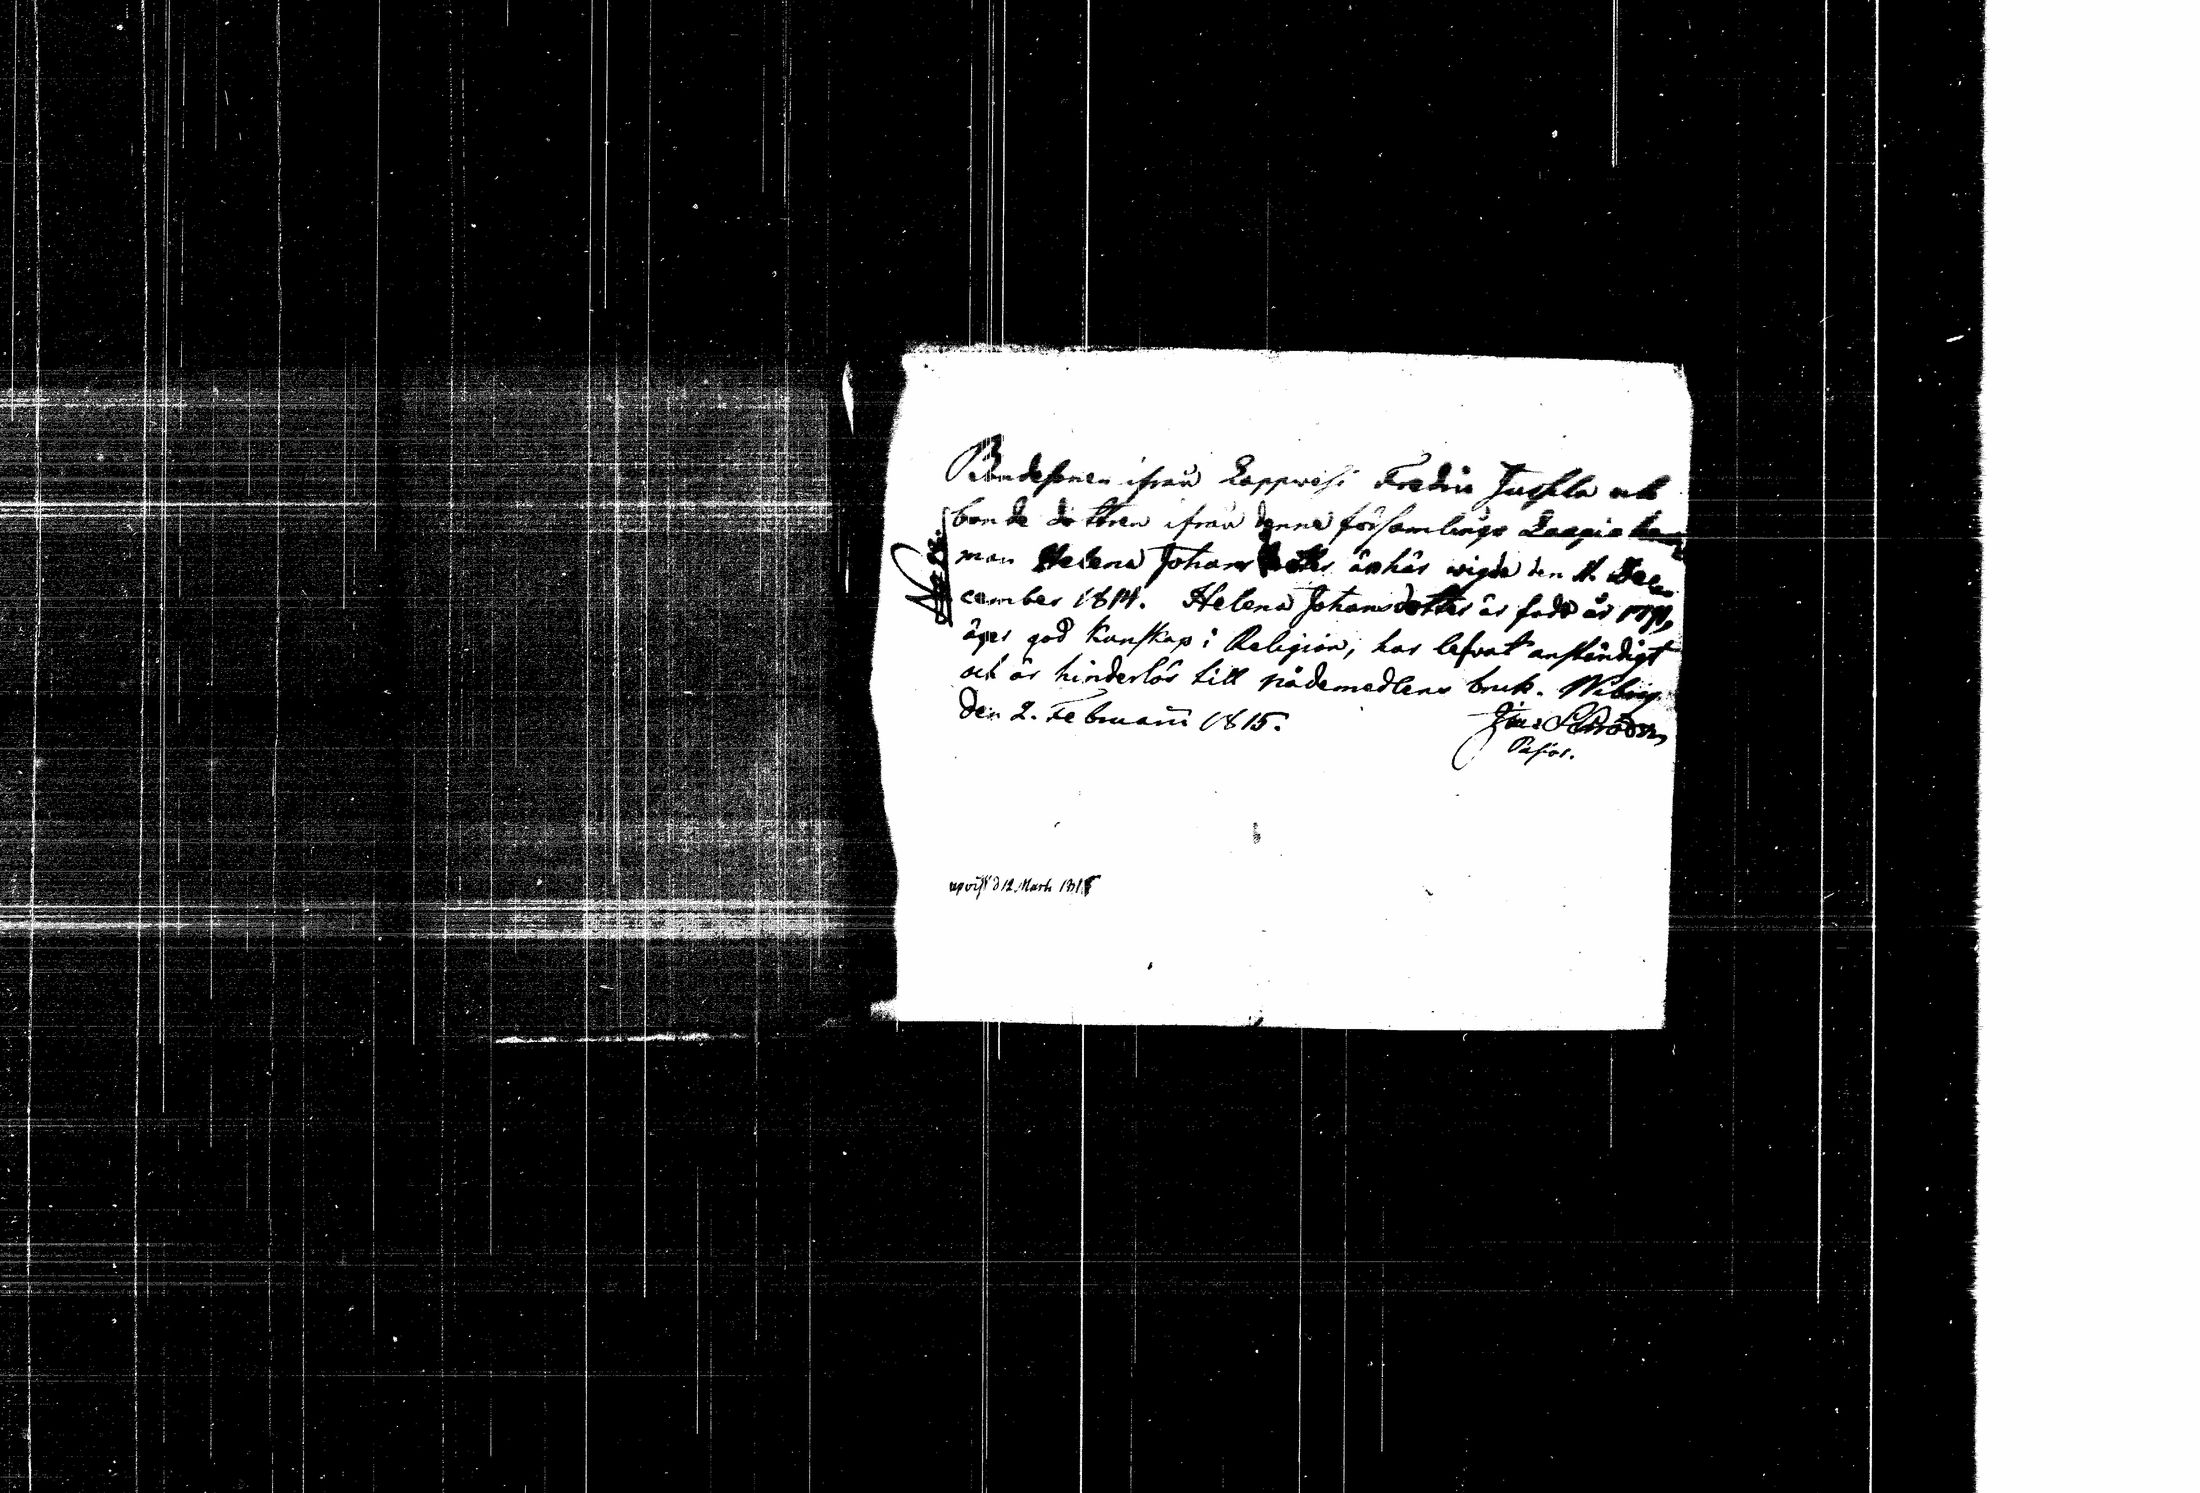 Bondesonen ifrån Lappwesi Fredric Juszila och
bonde dottren ifrån denne församlings
man Helena Johans dotter är här wigde den 11. De-
cember 1814. Helena Johansdotter är född år
äger god kunskap i Religion, har lefwat anständigt
och är hinderlös till nådemedlens bruk. Wiborg
den 2. Februarii 1815.
Pastor.
upvist d 12 Martii 1815